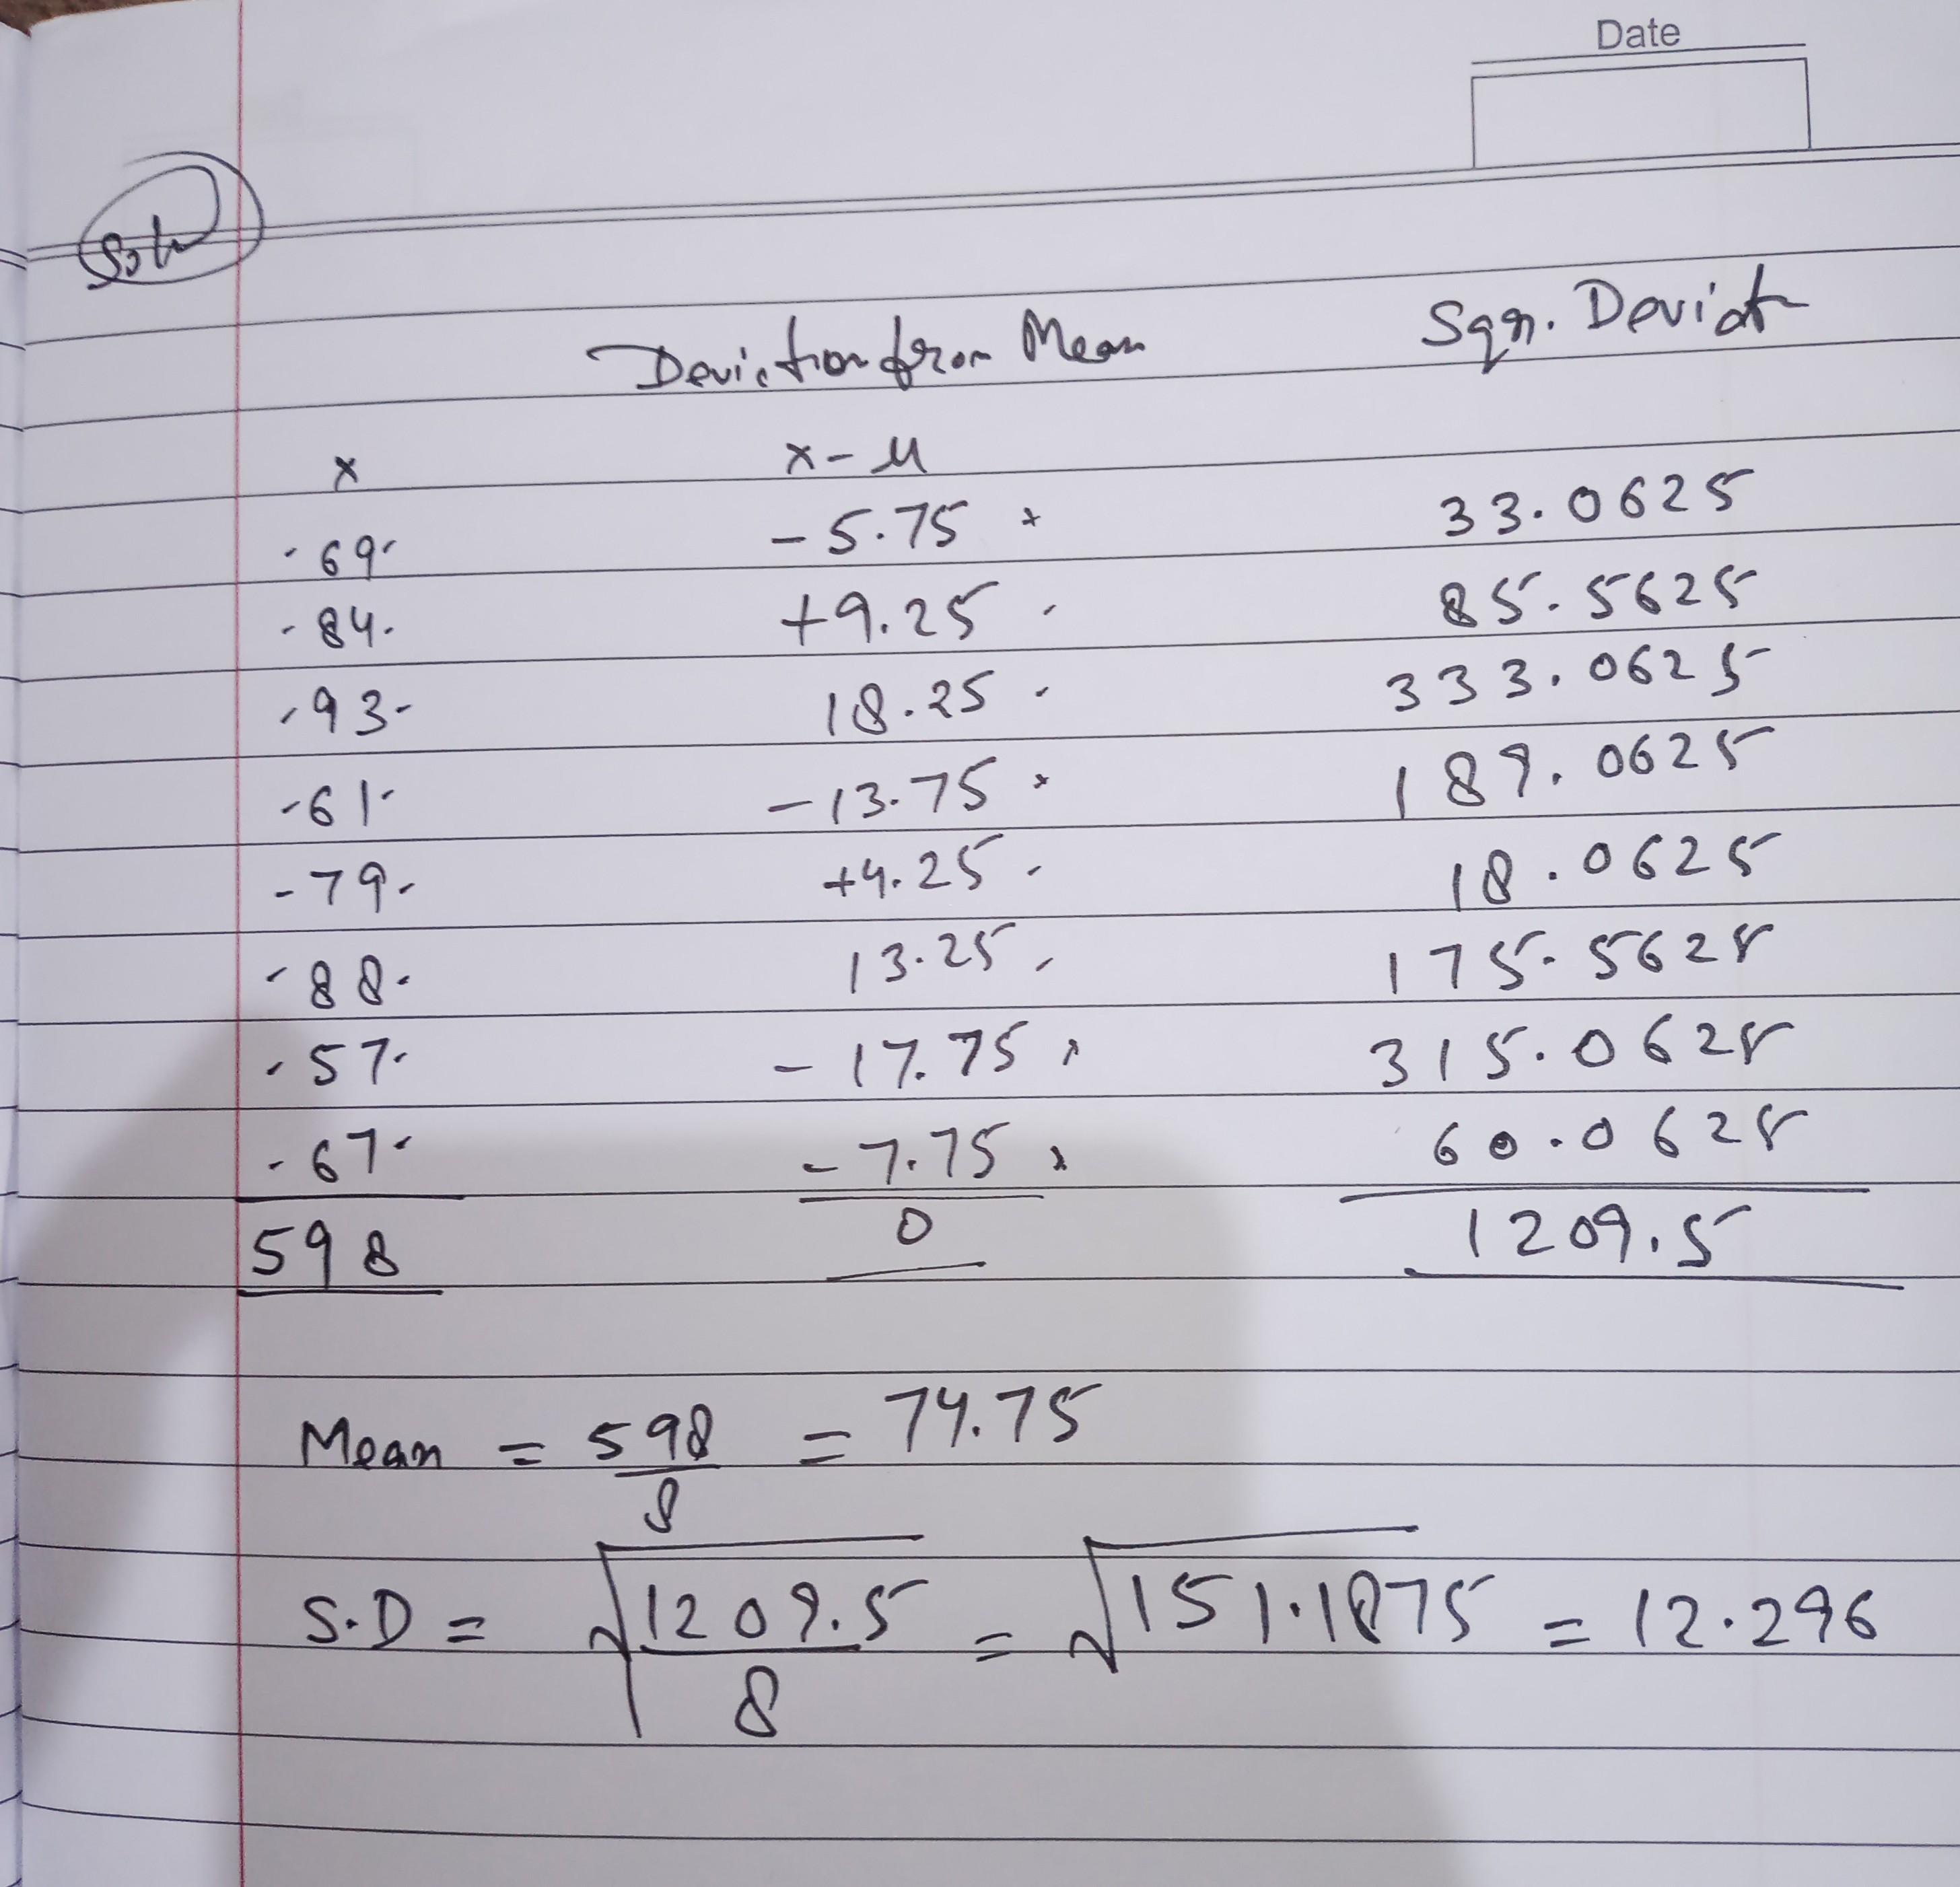 Date
Soln
Deviation from Mean Sqr. Deviat
x x-μ
69 -5.75 33.0625
84 +9.25 85.5625
93 18.25 333.0625
61 -13.75 189.0625
79 +4.25 18.0625
88 13.25 175.5625
57 -17.75 315.0625
67 -7.75 60.0625
598 0 1209.5
Mean = 598/8 = 74.75
S.D = √1209.5/8 = √151.1875 = 12.296